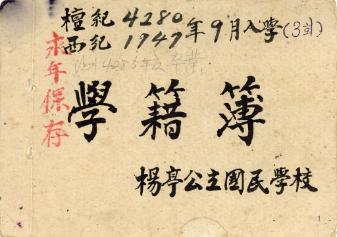 檀紀4280年9月入學(3회)
西紀1947
永年保存
學籍簿
楊亭公立國民學校